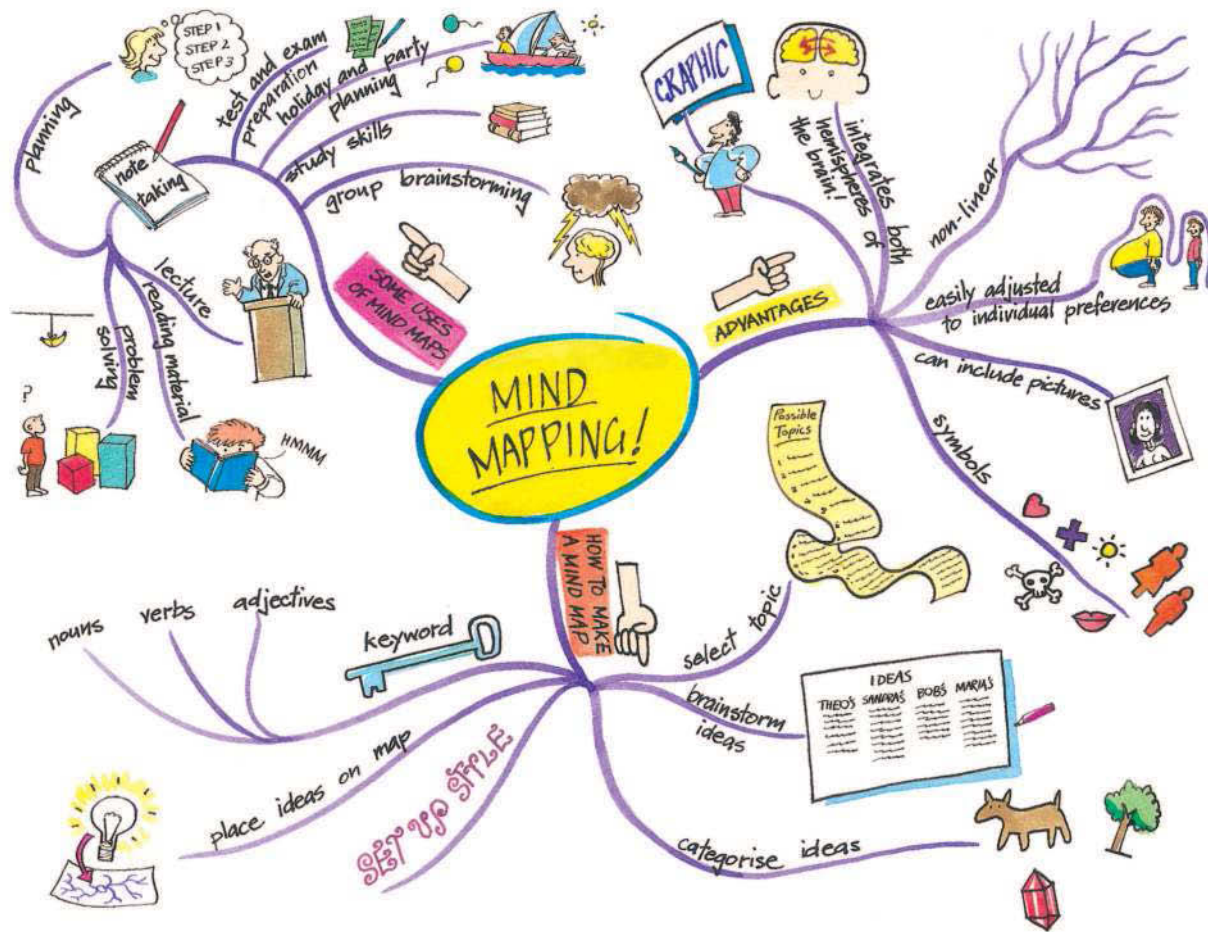 MIND
MAPPING!
SOME USES
OF MIND MAPS
planning
STEP 1
STEP 2
STEP 3
note
taking
test and exam
preparation
holiday and party
planning
study skills
group brainstorming
lecture
reading material
problem
solving
?
HMMM
ADVANTAGES
GRAPHIC
integrates both
hemispheres of
the brain!!
non-linear
easily adjusted
to individual preferences
can include pictures
symbols
HOW TO MAKE
A MIND MAP
select topic
Possible
Topics
brainstorm
ideas
IDEAS
THEO'S SANDRA'S BOB'S MARIA'S
categorise ideas
SET UP STYLE
place ideas on map
keyword
nouns
verbs
adjectives